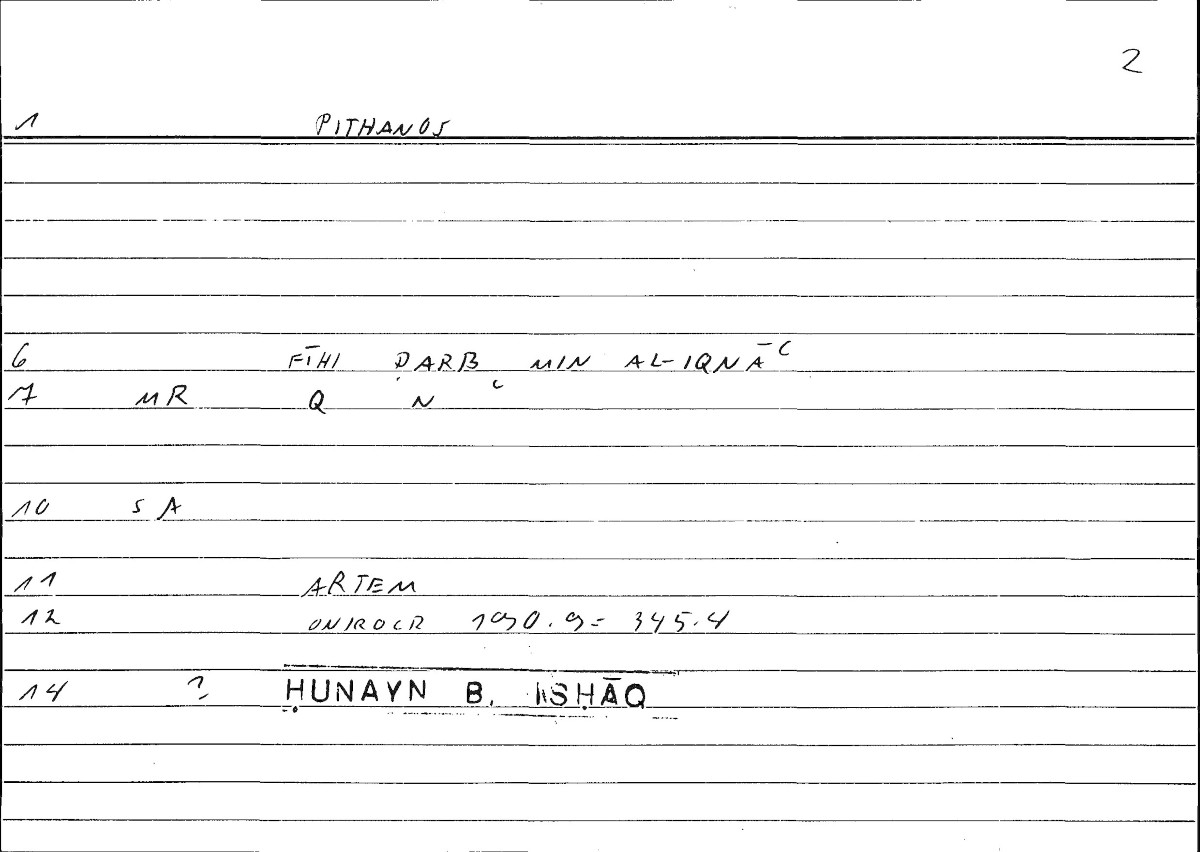 2
1 PITHANOS
6 FĪHI ḌARB MIN AL-IQNĀʿ
7 MR Q N ʿ
10 S A
11 ARTEM
12 ONIROCR 190.9 = 345.4
14 ? ḤUNAYN B. ISḤĀQ